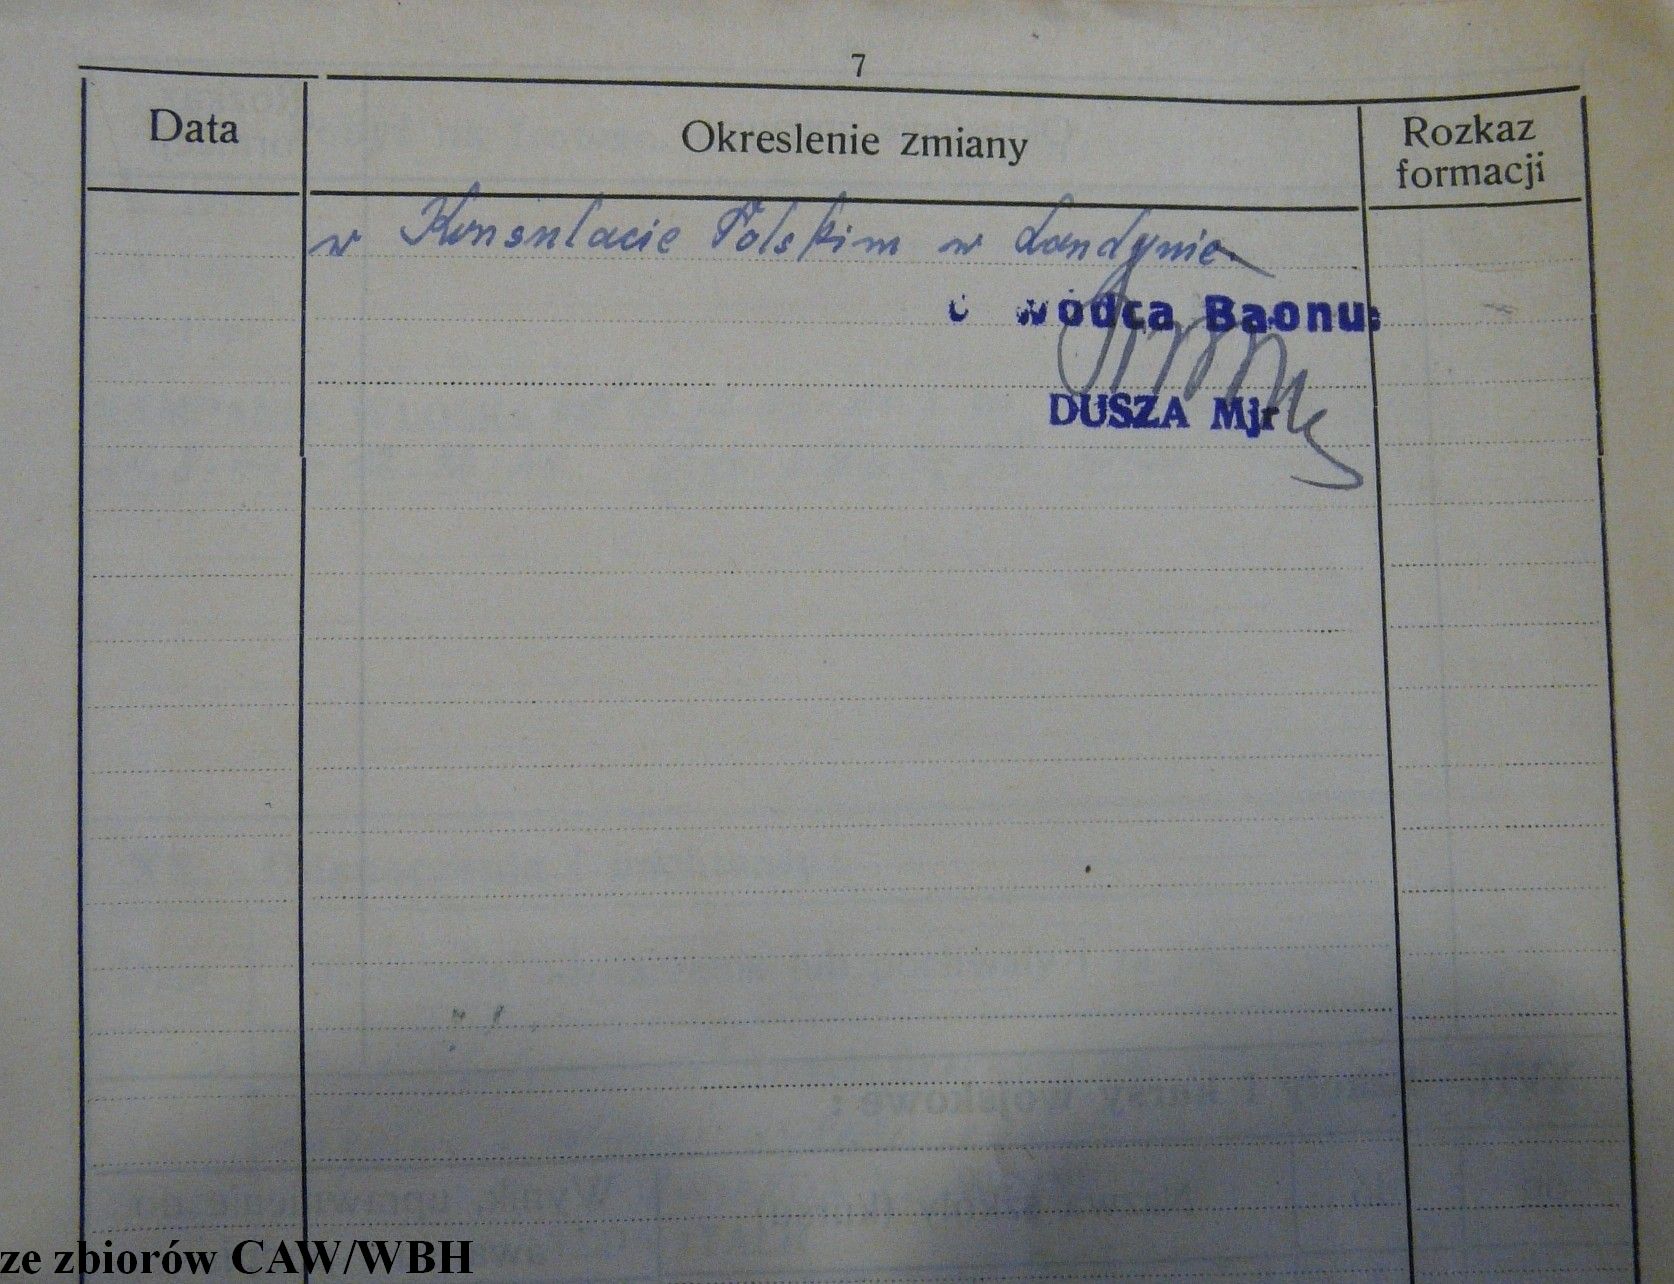 7
Data
Okreslenie zmiany
Rozkaz
formacji
w Konsulacie Polskim w Londynie
wódca Baonu
DUSZA Mjr
ze zbiorów CAW/WBH